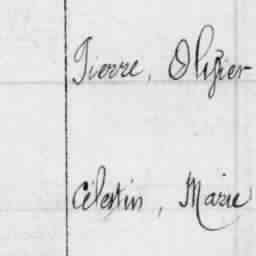 Pierre, Olivier
Célestin, Marie